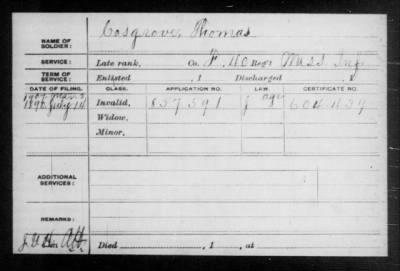 NAME OF SOLDIER: Cosgrove, Thomas
SERVICE: Late rank, Co. F, 40 Reg't Mass Inf
TERM OF SERVICE: Enlisted , 1 Discharged , 1
DATE OF FILING. CLASS. APPLICATION NO. LAW. CERTIFICATE NO.
1890 July 14 Invalid, 857591 604439
Widow,
Minor,
ADDITIONAL SERVICES:
REMARKS:
Died , 1 , at